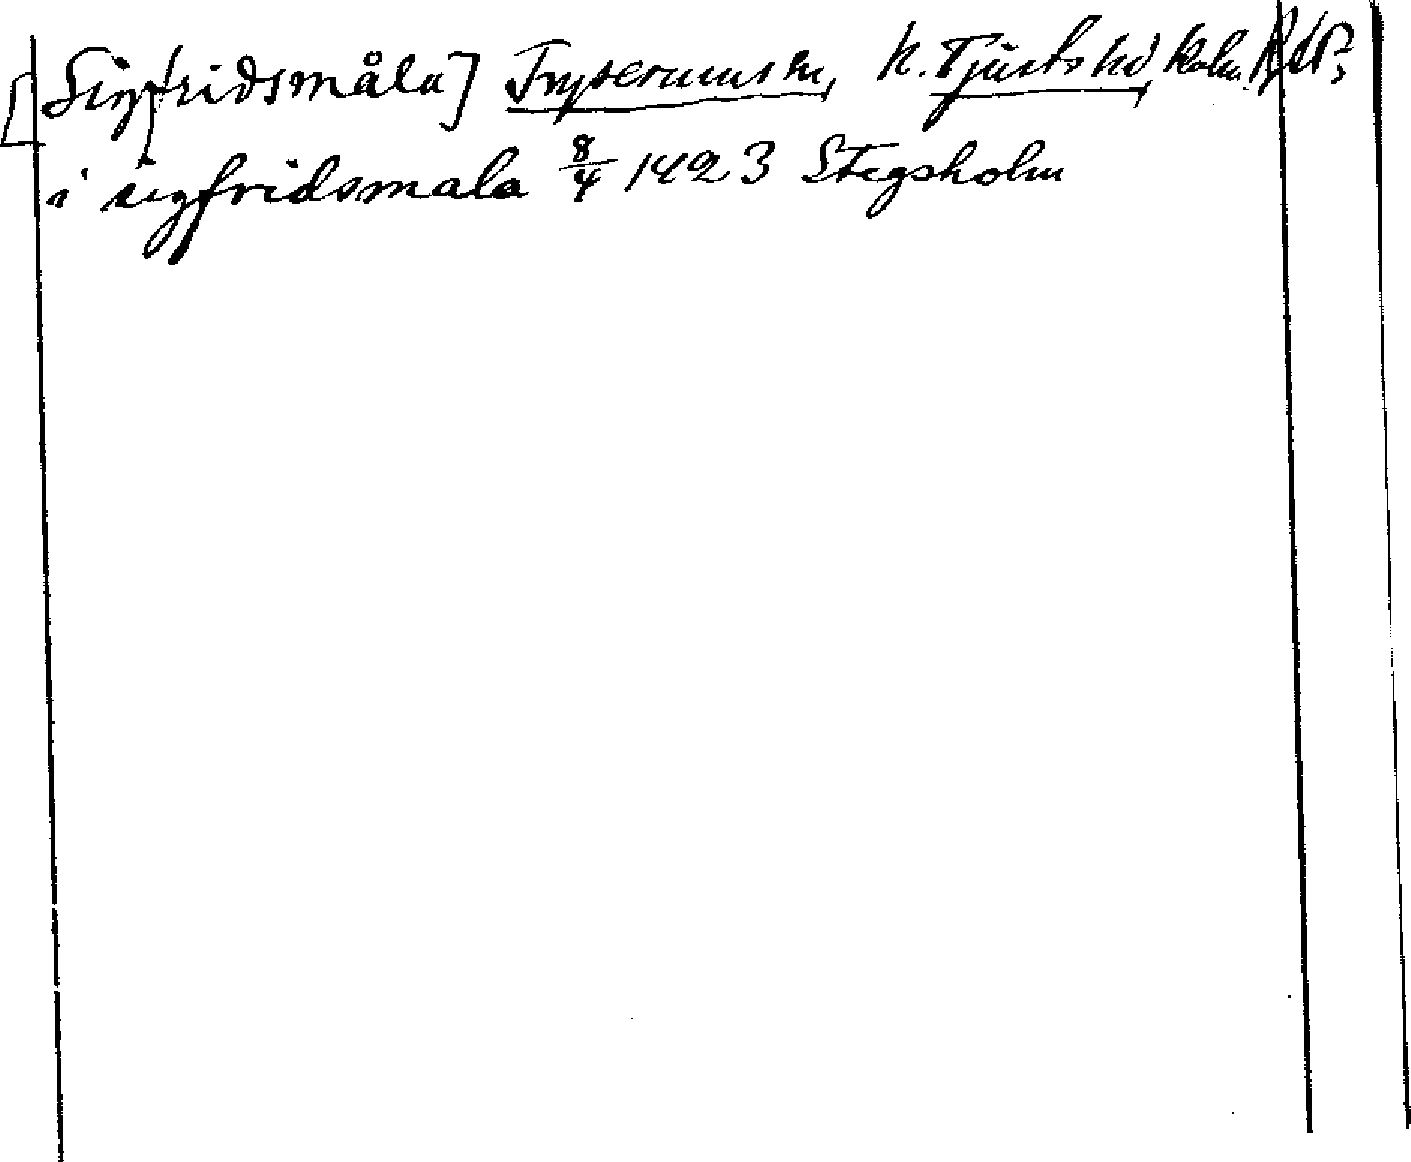 [Sigfridsmåla] Tryserums sn, N. Tjusts hd, Kalm.
i sigfridsmala 8/4 1423 Stegsholm